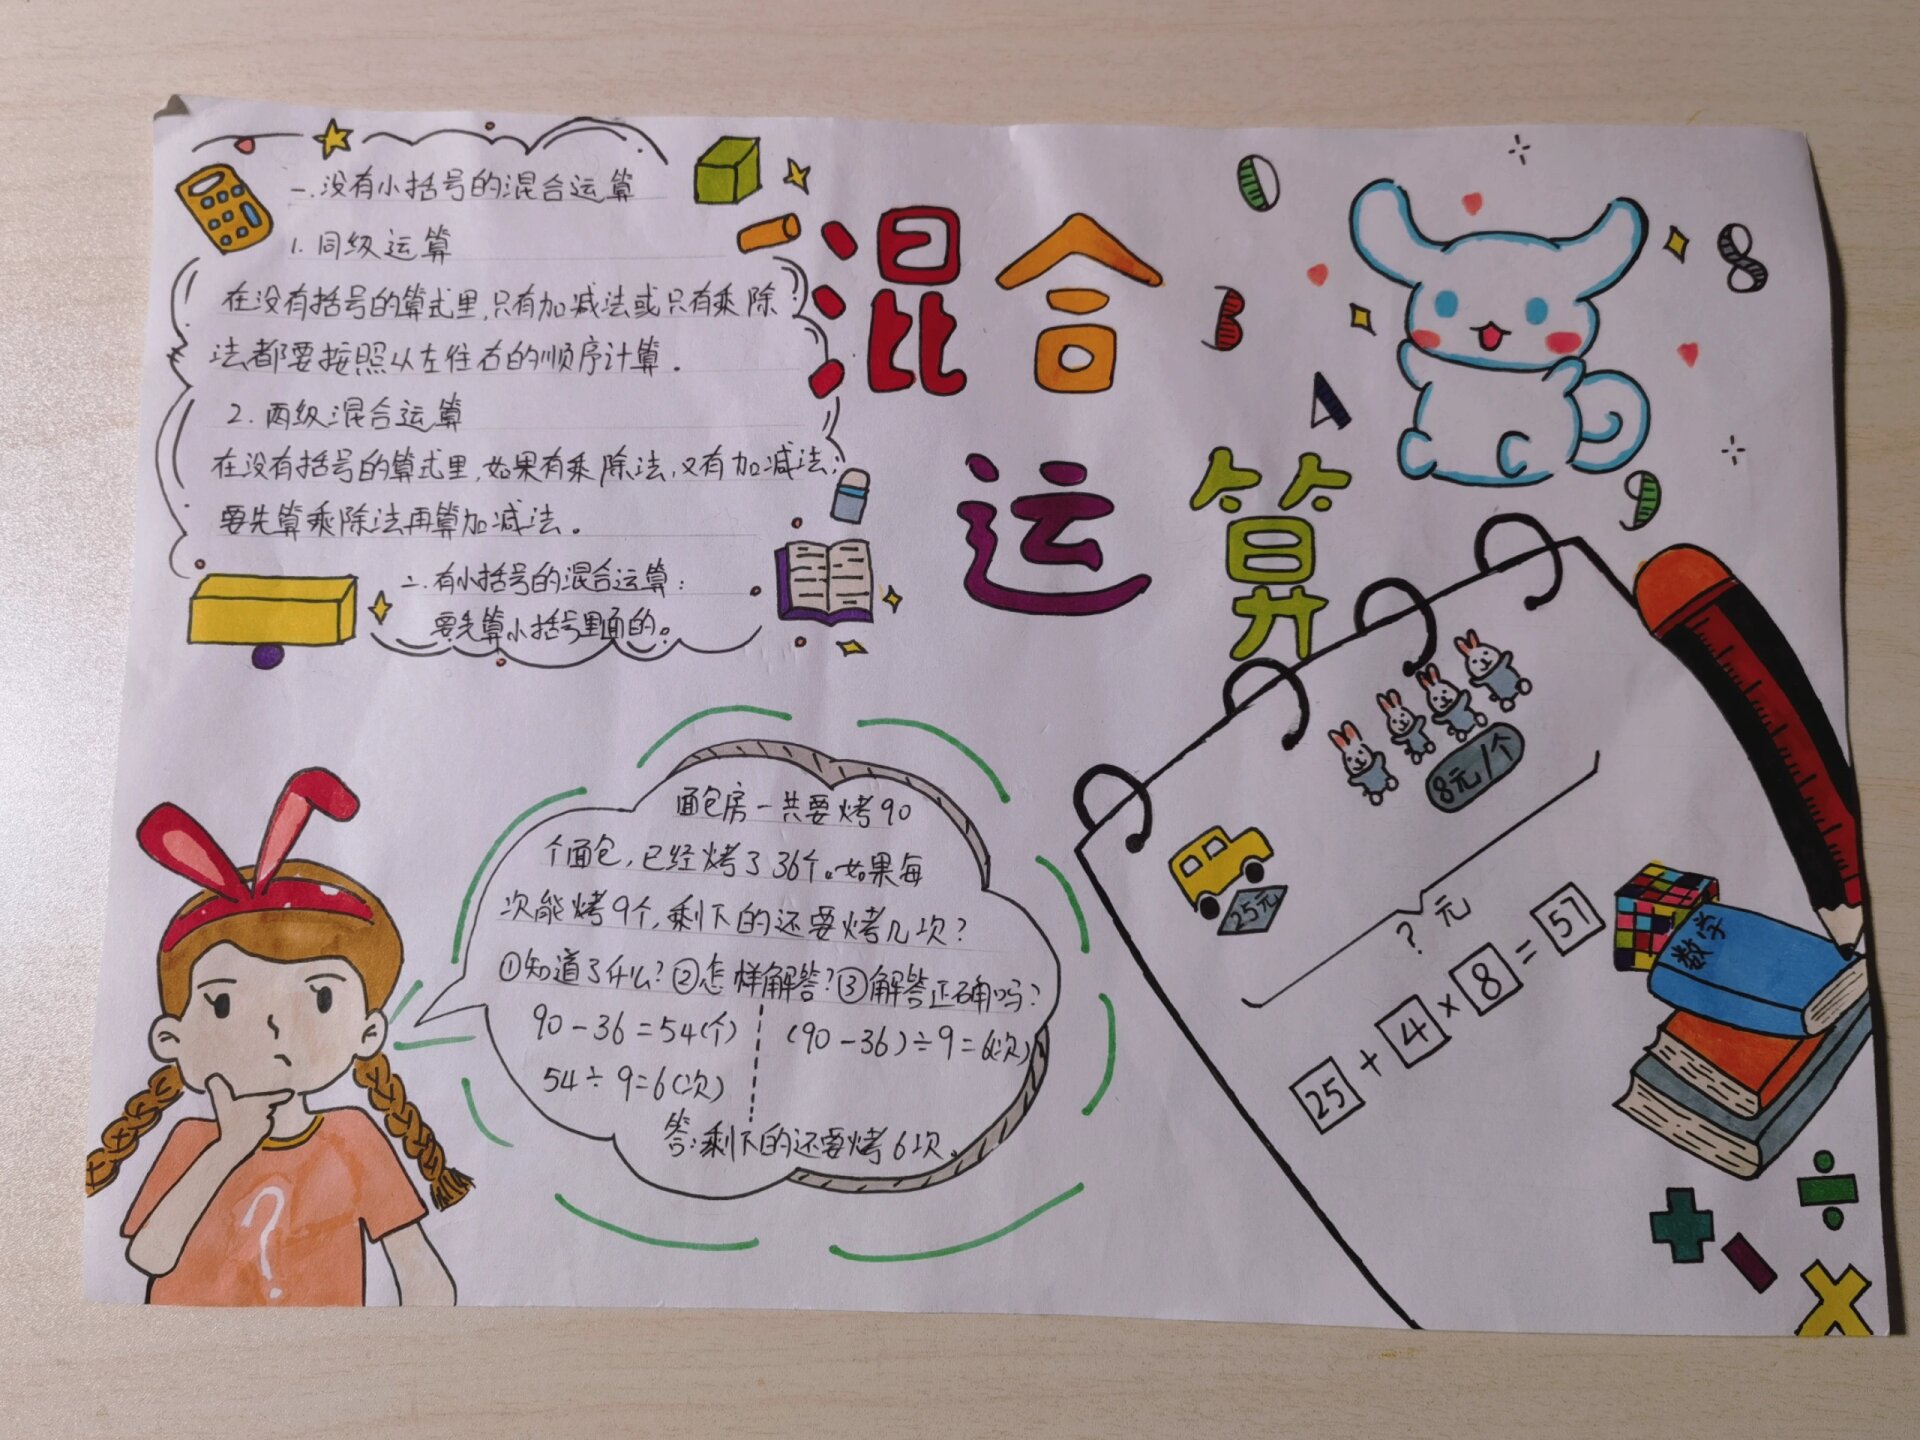 一.没有小括号的混合运算
1.同级运算
在没有括号的算式里,只有加减法或只有乘除
法都要按照从左往右的顺序计算。
2.两级混合运算
在没有括号的算式里,如果有乘除法,又有加减法;
要先算乘除法再算加减法。
二.有小括号的混合运算:
要先算小括号里面的。
混合
运算
0
3
4
8
9
面包房一共要烤90
个面包,已经烤了36个。如果每
次能烤9个,剩下的还要烤几次?
①知道了什么?②怎样解答?③解答正确吗?
90-36=54(个)
54÷9=6(次)
(90-36)÷9=6(次)
答:剩下的还要烤6次。
?
8元/个
25元
?元
25+4×8=57
数学
+ - ÷ ×